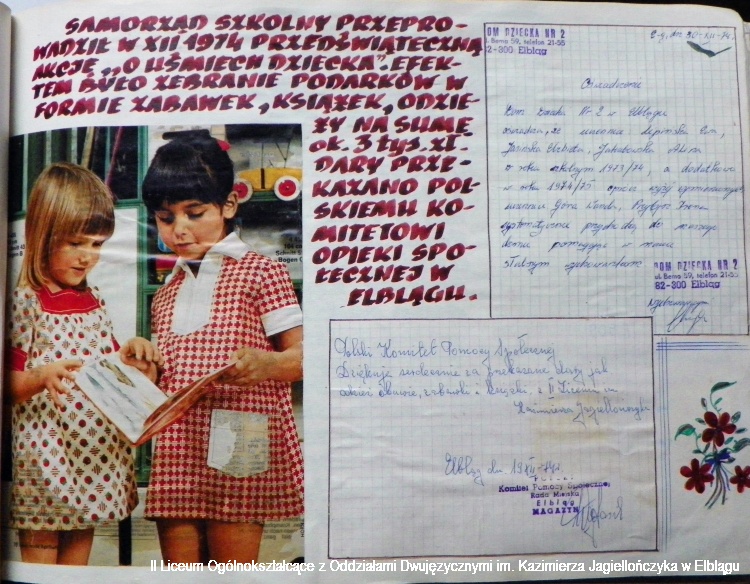 SAMORZĄD SZKOLNY PRZEPRO-
WADZIŁ W XII 1974 PRZEDŚWIĄTECZNĄ
AKCJĘ „O UŚMIECH DZIECKA". EFEK-
TEM BYŁO ZEBRANIE PODARKÓW W
FORMIE ZABAWEK, KSIĄŻEK, ODZIE-
ŻY NA SUMĘ
ok. 3 tys. zł.
DARY PRZE-
KAZANO POL-
SKIEMU KO-
MITETOWI
OPIEKI SPO-
ŁECZNEJ W
ELBLĄGU.
DOM DZIECKA NR 2
ul. Bema 59, telefon 21-55
82-300 Elbląg
E-g, dn. 30-XII-74.
Oświadczenie
Dom Dziecka Nr 2 w Elblągu
oświadcza, że uczennice Lipińska Ewa,
Jasińska Elżbieta, Jakubowska Alina
w roku szkolnym 1973/74, a dodatkowo
w roku 1974/75 oprócz wyżej wymienionych
uczennice Góra Wanda,
systematycznie przychodzą do naszego
domu pomagając w nauce
słabszym wychowankom.
DOM DZIECKA NR 2
ul. Bema 59, telefon 21-55
82-300 Elbląg
Polski Komitet Pomocy Społecznej
Dziękuje serdecznie za przekazane dary jak
odzież obuwie, zabawki i książki, z II Liceum im
Kazimierza Jagiellończyka
Elbląg dn. 19XII-74r.
POLSKI
Komitet Pomocy Społecznej
Rada Miejska
Elbląg
MAGAZYN
II Liceum Ogólnokształcące z Oddziałami Dwujęzycznymi im. Kazimierza Jagiellończyka w Elblągu